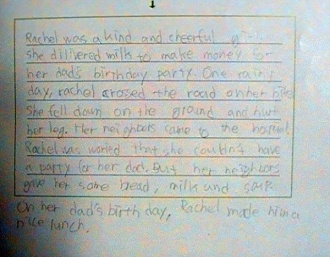 Rachel was a kind and cheerful girl.
She dilivered milk to make money for
her dad's birthday party. One rainy
day, rachel crossed the road on her bike
She fell down on the ground and hurt
her leg. Her neighbors came to the hospital
Rachel was worried that she couldn't have
a party for her dad. But her neighbors
gave her some bread, milk and soup.
On her dad's birth day, Rachel made him a
nice lunch.